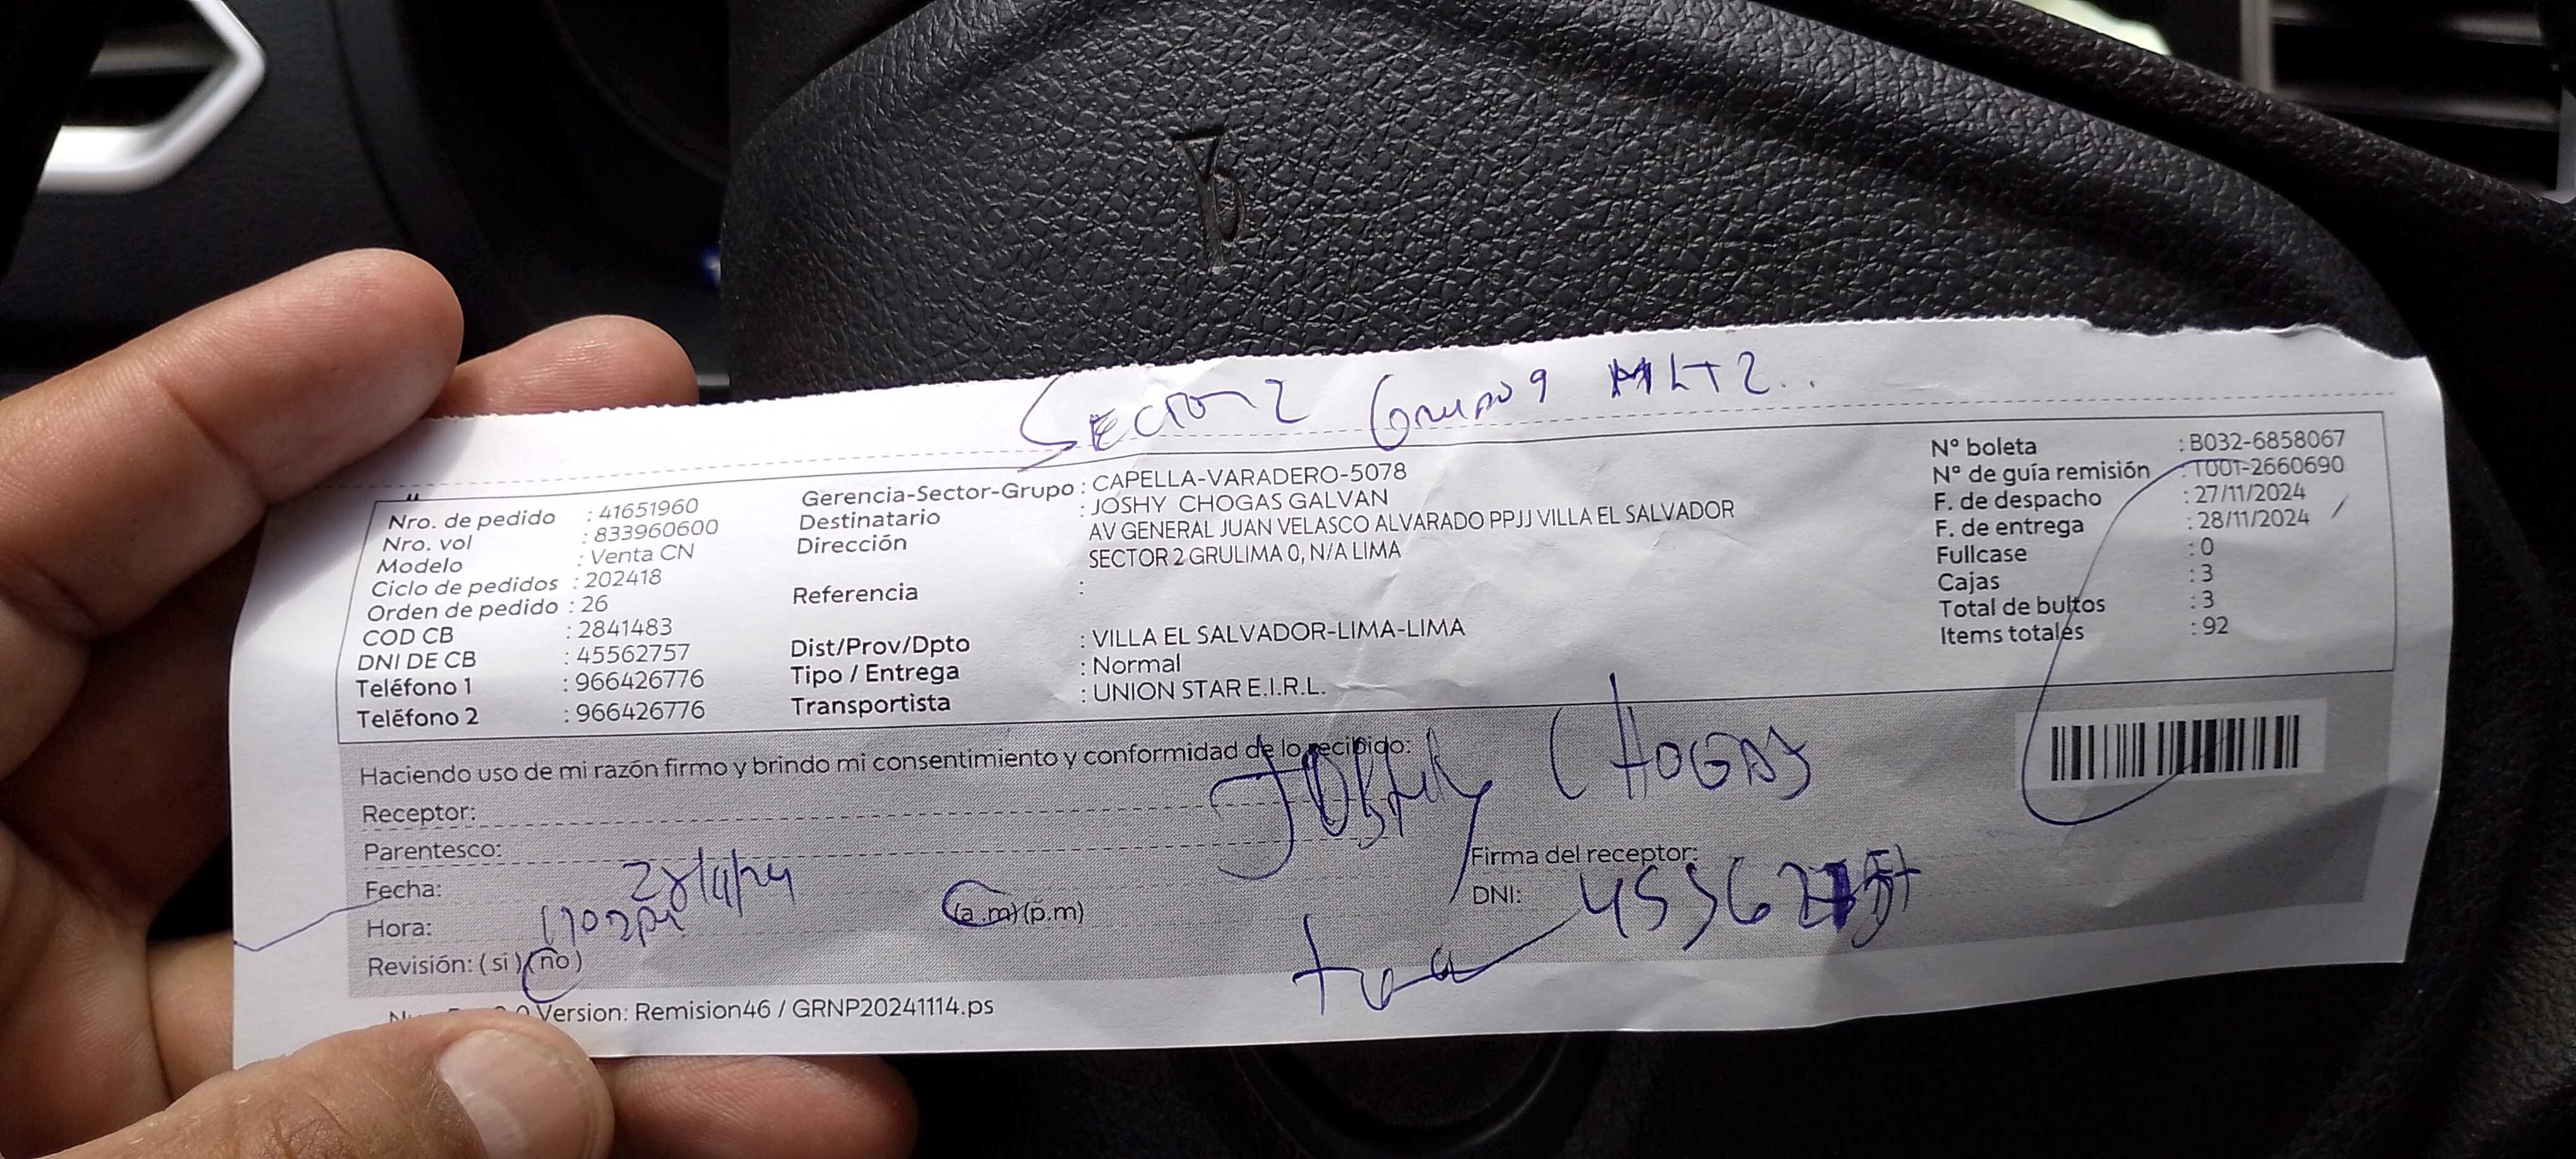 Sector 2 Grupo 9 M L T 2..
Nro. de pedido : 41651960
Nro. vol : 833960600
Modelo : Venta CN
Ciclo de pedidos : 202418
Orden de pedido : 26
COD CB : 2841483
DNI DE CB : 45562757
Teléfono 1 : 966426776
Teléfono 2 : 966426776
Gerencia-Sector-Grupo : CAPELLA-VARADERO-5078
Destinatario : JOSHY CHOGAS GALVAN
Dirección AV GENERAL JUAN VELASCO ALVARADO PPJJ VILLA EL SALVADOR
SECTOR 2 GRULIMA 0, N/A LIMA
Referencia :
Dist/Prov/Dpto : VILLA EL SALVADOR-LIMA-LIMA
Tipo / Entrega : Normal
Transportista : UNION STAR E.I.R.L.
N° boleta : B032-6858067
N° de guía remisión : T001-2660690
F. de despacho : 27/11/2024
F. de entrega : 28/11/2024
Fullcase : 0
Cajas : 3
Total de bultos : 3
Items totales : 92
Haciendo uso de mi razón firmo y brindo mi consentimiento y conformidad de lo recibido:
Receptor: JOSHY CHOGAS
Parentesco:
Fecha: 28/11/24
Hora: (a.m) (p.m)
Revisión: (si) (no)
Firma del receptor:
DNI:
Version: Remision46 / GRNP20241114.ps